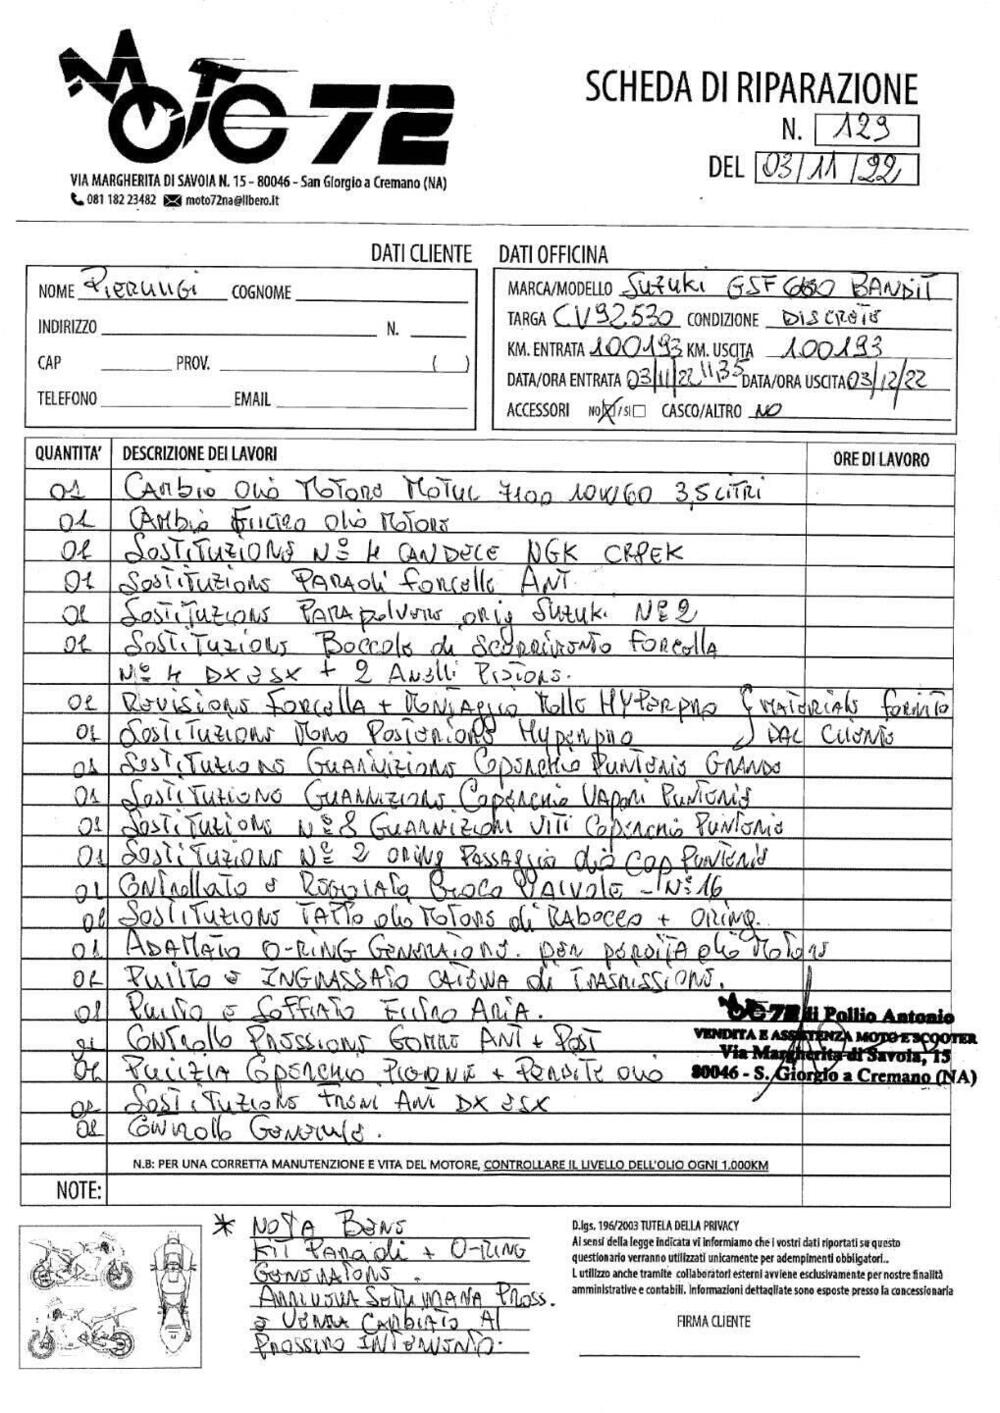 MOTO 72
SCHEDA DI RIPARAZIONE
N. 129
DEL 03/11/22
VIA MARGHERITA DI SAVOIA N. 15 - 80046 - San Giorgio a Cremano (NA)
081 182 23482 moto72na@libero.it
DATI CLIENTE
DATI OFFICINA
NOME PIERLUIGI COGNOME
INDIRIZZO N.
CAP PROV. ( )
TELEFONO EMAIL
MARCA/MODELLO SUZUKI GSF 600 BANDIT
TARGA CV92530 CONDIZIONE DISCRETO
KM. ENTRATA 100193 KM. USCITA 100193
DATA/ORA ENTRATA 03/11/22 11,35 DATA/ORA USCITA 03/12/22
ACCESSORI NO X / SI CASCO/ALTRO NO
QUANTITA' DESCRIZIONE DEI LAVORI ORE DI LAVORO
01 CAMBIO OLIO MOTORE MOTUL 7100 10W/60 3,5 LITRI
01 CAMBIO FILTRO OLIO MOTORE
01 SOSTITUZIONE N° 4 CANDELE NGK
01 SOSTITUZIONE PARAOLI FORCELLE ANT
01 SOSTITUZIONE PARAPOLVERE ORIG SUZUKI N° 2
01 SOSTITUZIONE BOCCOLE DI SCORRIMENTO FORCELLA
N° 4 DX E SX + 2 ANELLI PISTONE.
01 REVISIONE FORCELLA + MONTAGGIO MOLLE HYPERPRO } MATERIALE FORNITO
01 SOSTITUZIONE MONO POSTERIORE HYPERPRO } DAL CLIENTE
01 SOSTITUZIONE GUARNIZIONE COPERCHIO PUNTERIE GRANDE
01 SOSTITUZIONE GUARNIZIONE COPERCHIO VAPORI PUNTERIE
01 SOSTITUZIONE N° 8 GUARNIZIONI VITI COPERCHIO PUNTERIE
01 SOSTITUZIONE N° 2 ORING PASSAGGIO OLIO COP PUNTERIE
01 CONTROLLATO E REGOLATO GIOCO VALVOLE - N° 16
01 SOSTITUZIONE TAPPO OLIO MOTORE DI RABOCCO + ORING.
01 ADATTATO O-RING GENERATORE. PER PERDITA OLIO MOTORE
01 PULITO E INGRASSATO CATENA DI TRASMISSIONE.
01 PULITO E SOFFIATO FILTRO ARIA.
01 CONTROLLO PRESSIONE GOMME ANT + POST
01 PULIZIA COPERCHIO PIGNONE + PERDITE OLIO
01 SOSTITUZIONE FRENI ANT DX E SX
01 CONTROLLO GENERALE.
MOTO 72 di Pollio Antonio
VENDITA E ASSISTENZA MOTO E SCOOTER
Via Margherita di Savoia, 15
80046 - S. Giorgio a Cremano (NA)
N.B: PER UNA CORRETTA MANUTENZIONE E VITA DEL MOTORE, CONTROLLARE IL LIVELLO DELL'OLIO OGNI 1.000KM
NOTE:
* NOTA BENE
KIT PARAOLI + O-RING
GENERATORE.
ARRIVERA SETTIMANA PROSS.
E VERRA CAMBIATO AL
PROSSIMO INTERVENTO.
D.lgs. 196/2003 TUTELA DELLA PRIVACY
Ai sensi della legge indicata vi informiamo che i vostri dati riportati su questo
questionario verranno utilizzati unicamente per adempimenti obbligatori..
L utilizzo anche tramite collaboratori esterni avviene esclusivamente per nostre finalità
amministrative e contabili. Informazioni dettagliate sono esposte presso la concessionaria
FIRMA CLIENTE